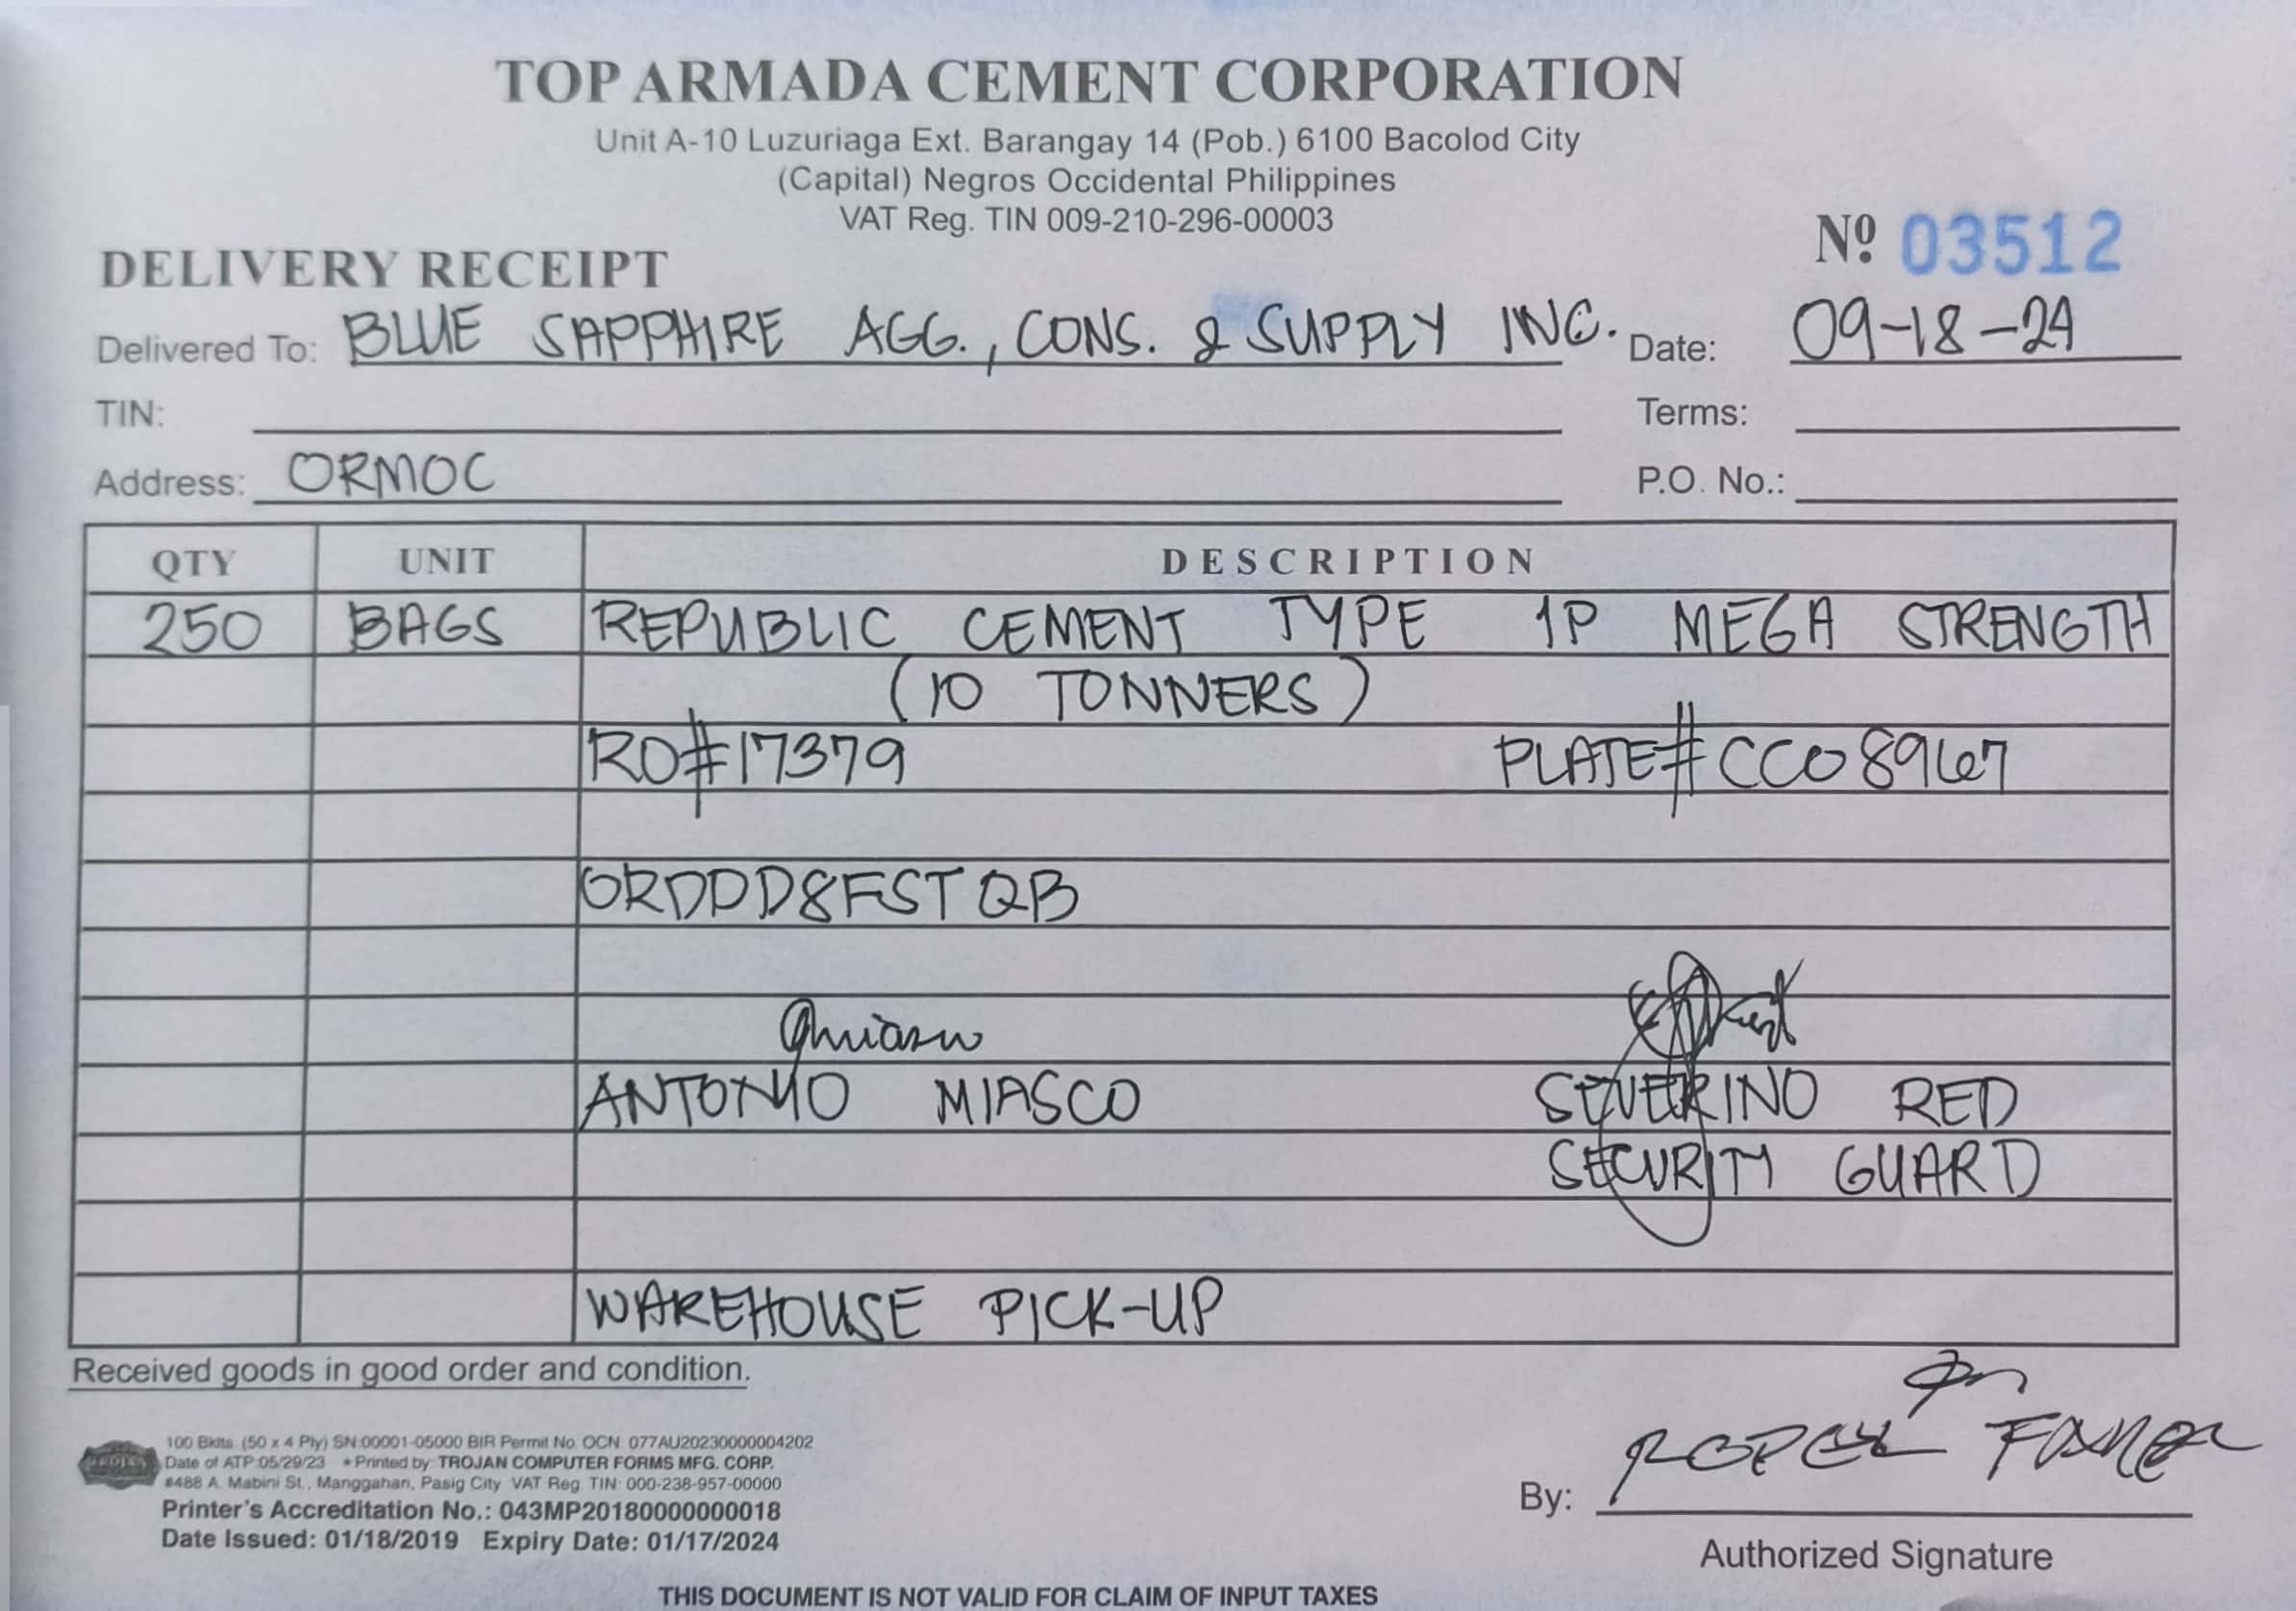 TOP ARMADA CEMENT CORPORATION
Unit A-10 Luzuriaga Ext. Barangay 14 (Pob.) 6100 Bacolod City
(Capital) Negros Occidental Philippines
VAT Reg. TIN 009-210-296-00003
Nº 03512
DELIVERY RECEIPT
Delivered To: BLUE SAPPHIRE AGG., CONS. & SUPPLY INC. Date: 09-18-24
TIN: Terms:
Address: ORMOC P.O. No.:
QTY UNIT DESCRIPTION
250 BAGS REPUBLIC CEMENT TYPE 1P MEGA STRENGTH
(10 TONNERS)
RO#17379 PLATE# CCO 8967
ORDDD8FSTQB
ANTONIO MIASCO SEVERINO RED
SECURITY GUARD
WAREHOUSE PICK-UP
Received goods in good order and condition.
100 Bklts. (50 x 4 Ply) SN:00001-05000 BIR Permit No. OCN: 077AU20230000004202
Date of ATP:05/29/23 * Printed by: TROJAN COMPUTER FORMS MFG. CORP.
#488 A. Mabini St., Manggahan, Pasig City VAT Reg. TIN: 000-238-957-00000
Printer's Accreditation No.: 043MP20180000000018
Date Issued: 01/18/2019 Expiry Date: 01/17/2024
By:
Authorized Signature
THIS DOCUMENT IS NOT VALID FOR CLAIM OF INPUT TAXES